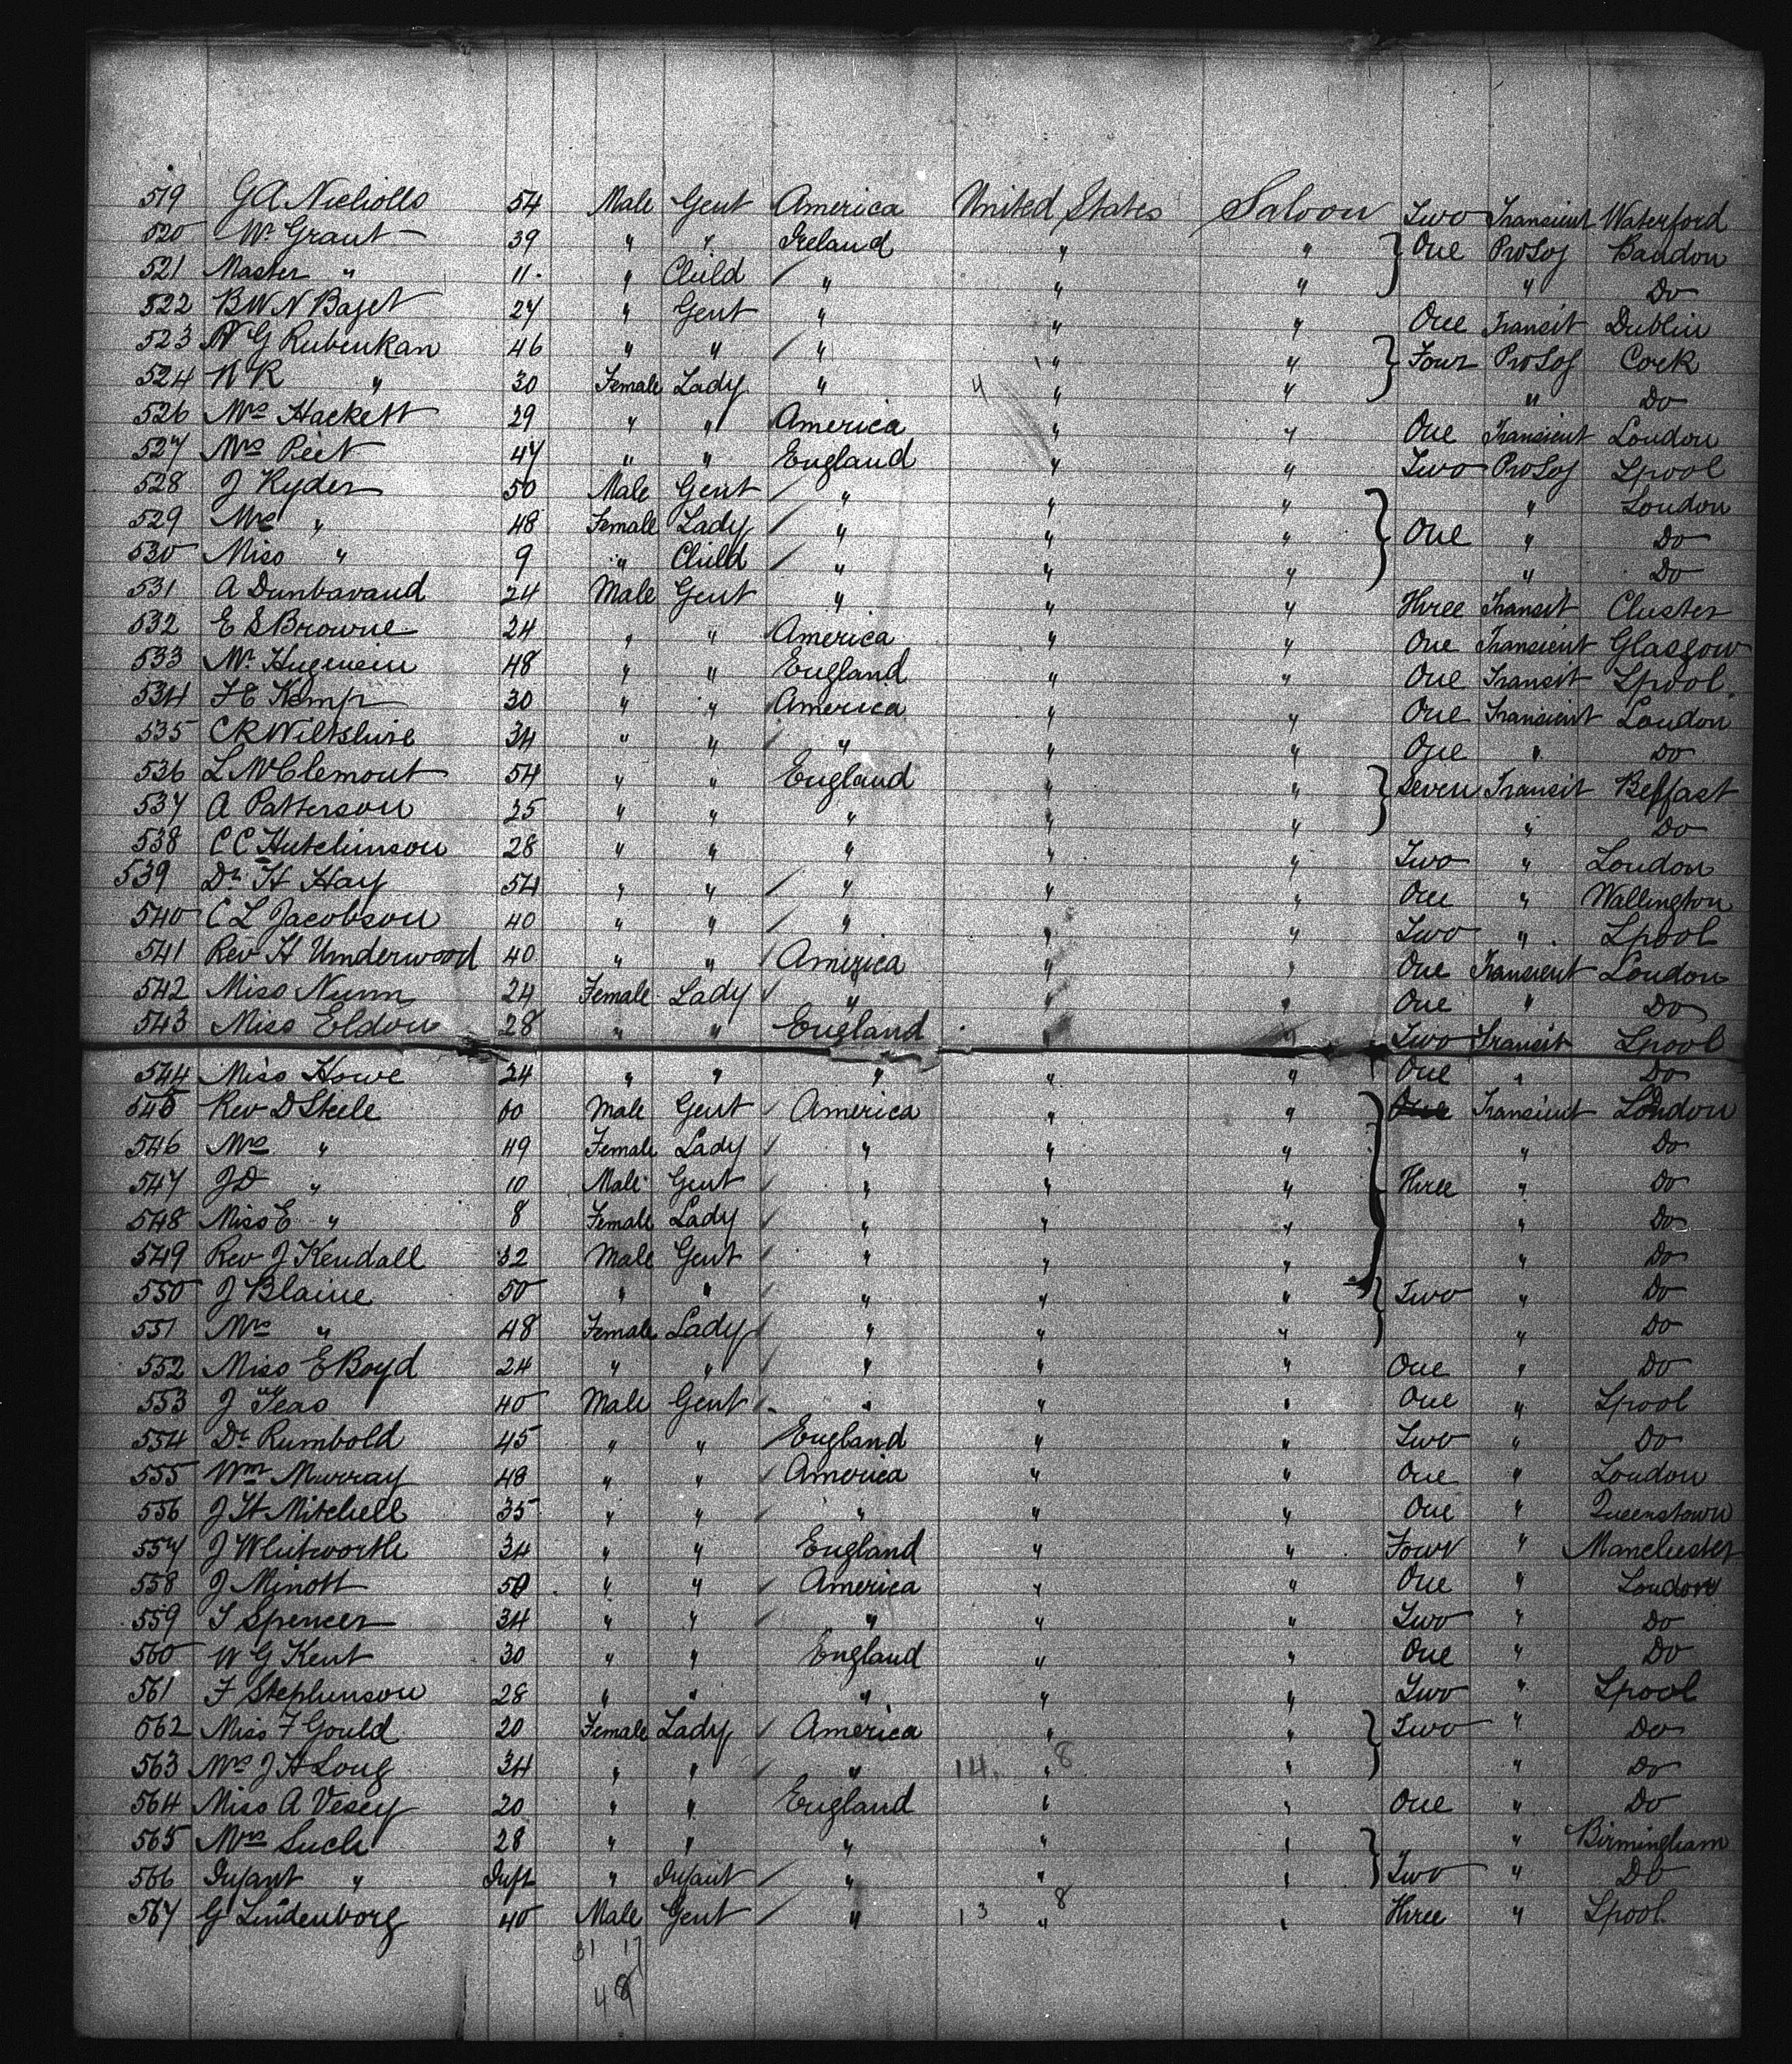 519 G A Nicholls 54 Male Gent America United States Saloon Two Transient Waterford
520 Wm Grant 39 " " Ireland " " One ProSoj Bandon
521 Master " 11 " Child " " " " Do
522 B W N Baget 27 " Gent " " " One Transit Dublin
523 N G Rubenkan 46 " " " " " Four ProSoj Cork
524 N R " 30 Female Lady " 4 " " " Do
526 Mrs Hackett 29 " " America " " One Transient London
527 Mrs Peet 47 " " England " " Two ProSoj Lpool
528 J Ryder 50 Male Gent " " " " London
529 Mrs " 48 Female Lady " " " One " Do
530 Miss " 9 " Child " " " " Do
531 A Dunbavand 24 Male Gent " " " Three Transit Chester
532 E S Browne 24 " " America " " One Transient Glasgow
533 Mr Huguenin 48 " " England " " One Transit Lpool
534 F E Kemp 30 " " America " " One Transient London
535 C R Wiltshire 34 " " " " " One " Do
536 L McClemont 54 " " England " " Seven Transit Belfast
537 A Patterson 25 " " " " " " Do
538 C C Hutchinson 28 " " " " " Two " London
539 Dr H Hay 54 " " " " " One " Wallington
540 C L Jacobson 40 " " " " " Two " Lpool
541 Rev H Underwood 40 " " America " " One Transient London
542 Miss Nunn 24 Female Lady " " " One " Do
543 Miss Eldon 28 " " England " " Two Transit Lpool
544 Miss Howe 24 " " " " " One " Do
545 Rev D Steele 60 Male Gent America " " One Transient London
546 Mrs " 49 Female Lady " " " " Do
547 J D " 10 Male Gent " " " Three " Do
548 Miss E " 8 Female Lady " " " " Do
549 Rev J Kendall 32 Male Gent " " " " Do
550 J Blaine 50 " " " " " Two " Do
551 Mrs " 48 Female Lady " " " " Do
552 Miss E Boyd 24 " " " " " One " Do
553 J Teas 40 Male Gent " " " One " Lpool
554 Dr Rumbold 45 " " England " " Two " Do
555 Wm Murray 48 " " America " " One " London
556 J H Mitchell 35 " " " " " One " Queenstown
557 J Whitworth 34 " " England " " Four " Manchester
558 J Minott 50 " " America " " One " London
559 T Spencer 34 " " " " " Two " Do
560 W G Kent 30 " " England " " One " Do
561 F Stephenson 28 " " " " " Two " Lpool
562 Miss F Gould 20 Female Lady America " " Two " Do
563 Mrs J H Long 34 " " " 14 " 8 " " Do
564 Miss A Vesey 20 " " England " " One " Do
565 Mrs Such 28 " " " " " " Birmingham
566 Infant " Inft " Infant " " " Two " Do
567 G Lindenborg 40 Male Gent " 13 " 8 " Three " Lpool
31 17
48